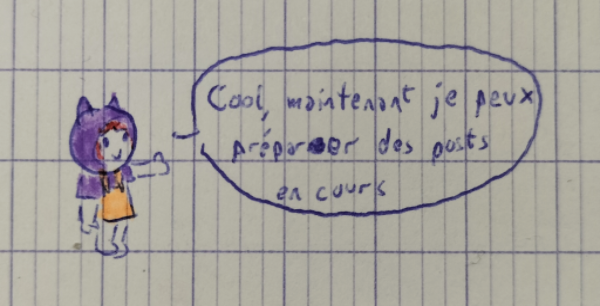 Cool, maintenant je peux
préparer des posts
en cours